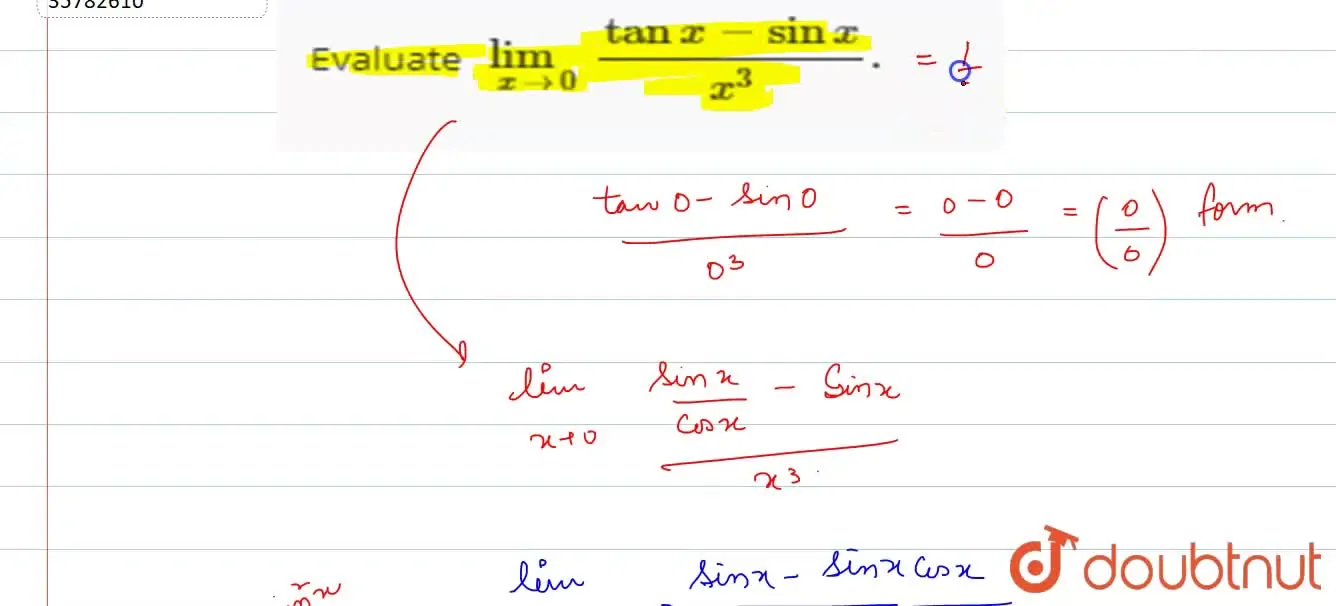 35782610
Evaluate lim x→0 tan x − sin x / x³ . = 1/
tan 0 - sin 0 / 0³ = 0 - 0 / 0 = (0/0) form.
lim x→0 sin x / cos x - Sin x / x³
lim sin x - sin x cos x
doubtnut